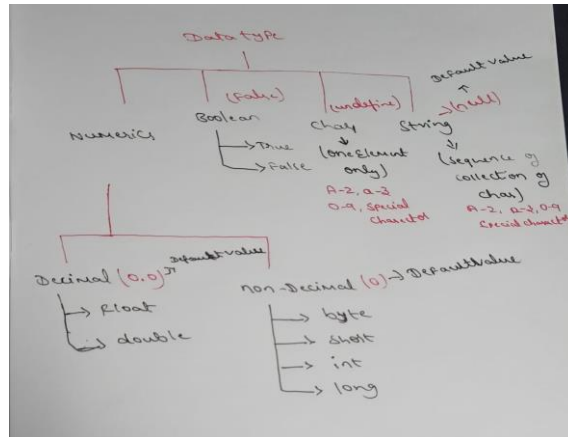 Datatype
Default value
(False)
(undefine)
→(null)
Numerics
Boolean
Char
String
→True
→False
(one Element
only)
A-Z, a-z
0-9, Special
Charector
(sequence of
collection of
char)
A-Z, a-z, 0-9
Special charactor
Default value
Decimal (0.0)
→ Float
→ double
non-Decimal (0) → Default Value
→ byte
→ short
→ int
→ long